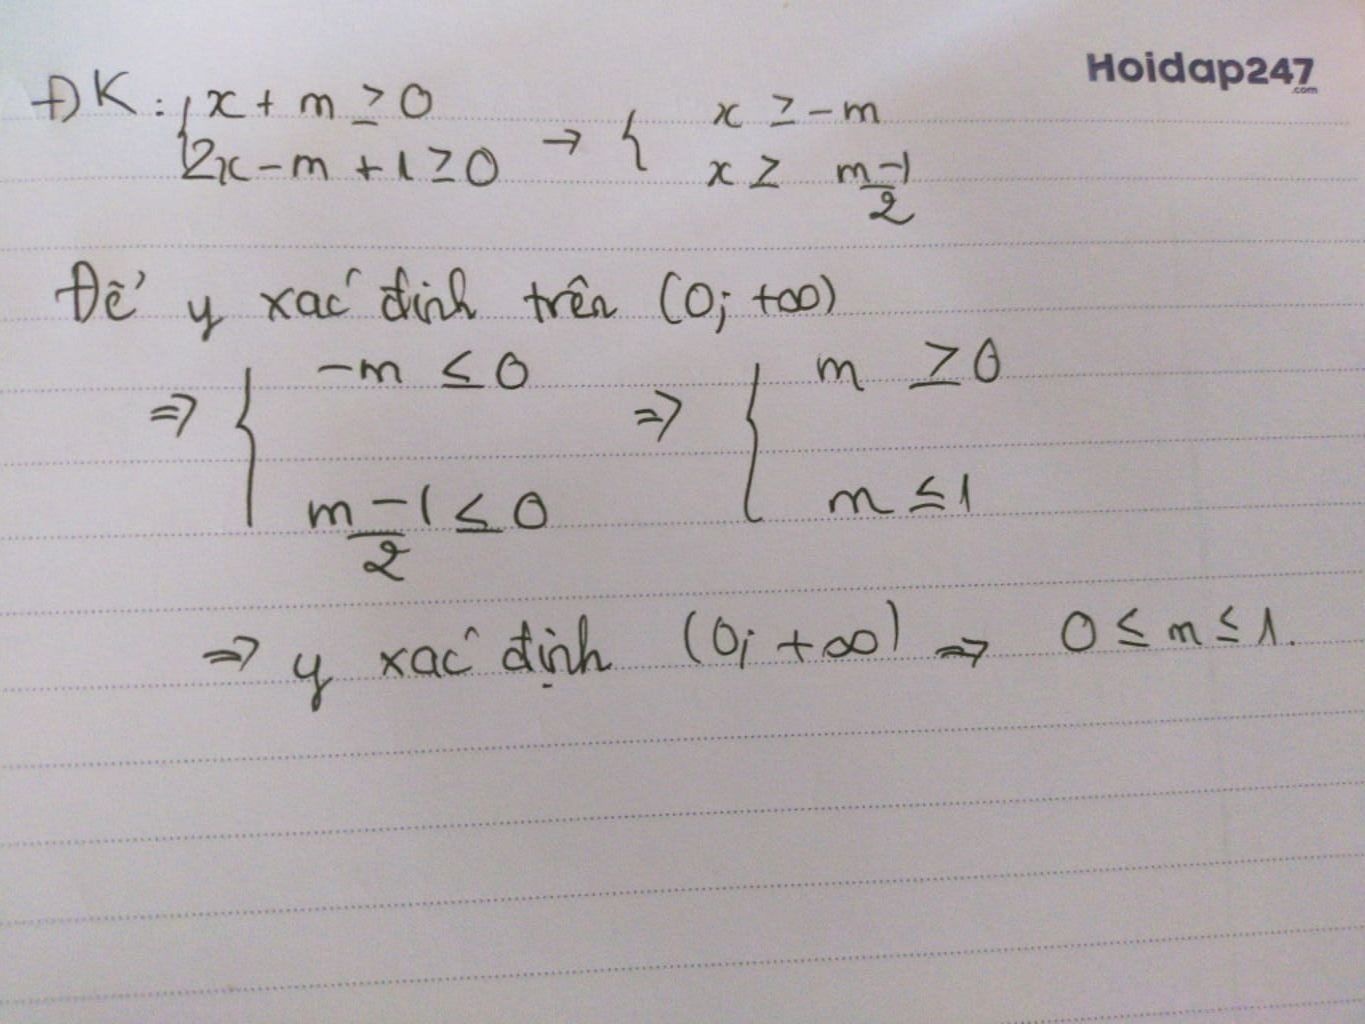 Hoidap247
.com
ĐK: { x + m ≥ 0 → { x ≥ -m
2x - m + 1 ≥ 0 x ≥ m-1/2
Để y xác định trên (0; +∞)
⇒ { -m ≤ 0 ⇒ { m ≥ 0
m-1/2 ≤ 0 m ≤ 1
⇒ y xác định (0; +∞) ⇒ 0 ≤ m ≤ 1.